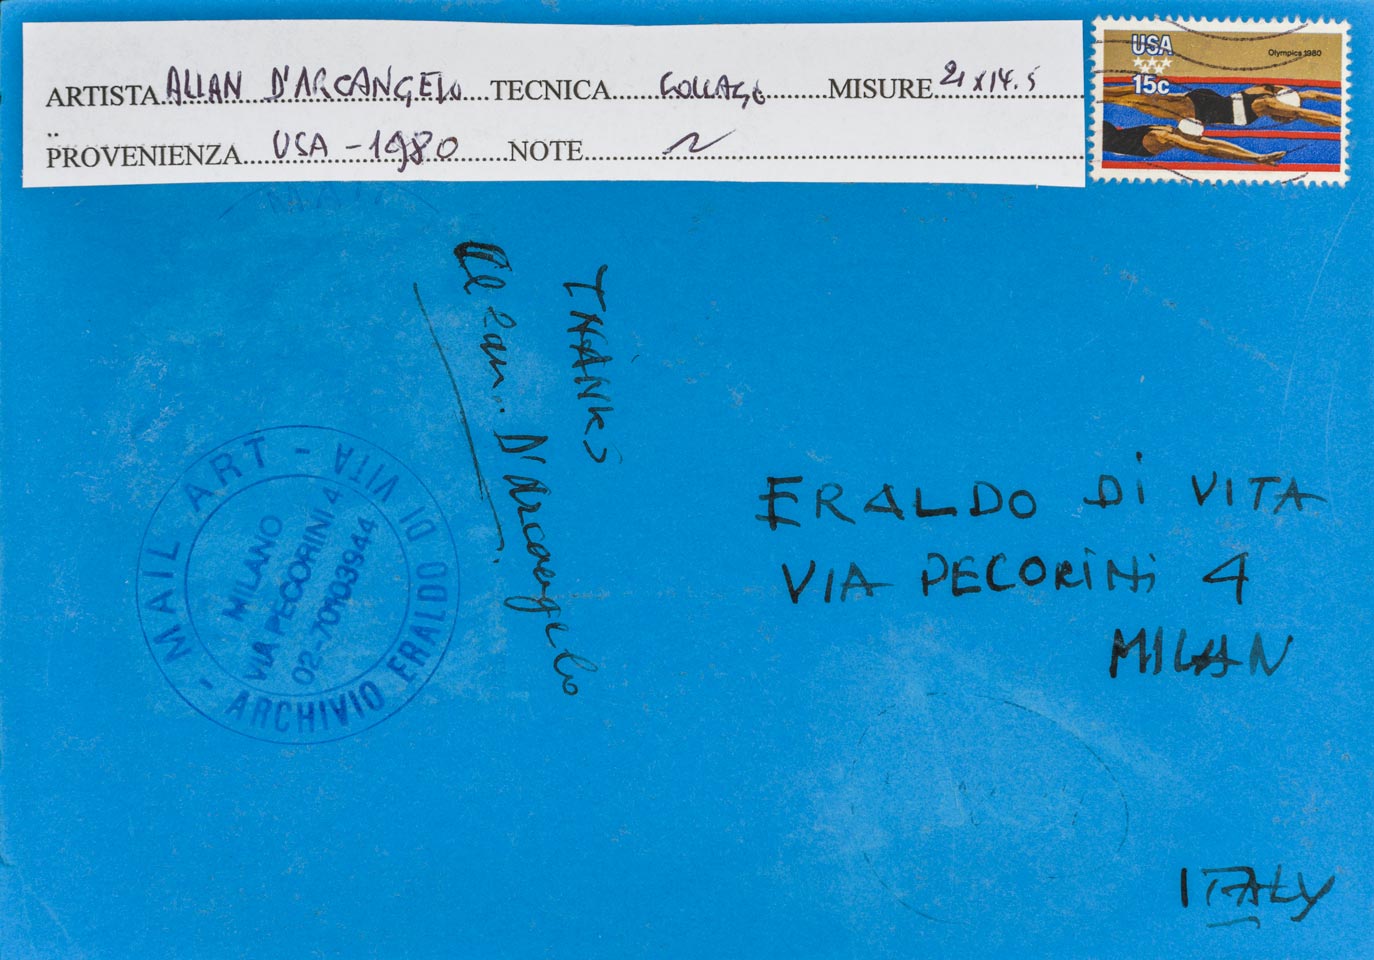 ARTISTA ALLAN D'ARCANGELO TECNICA COLLAGE MISURE 21x14.5
PROVENIENZA USA - 1980 NOTE
USA
Olympics 1980
15c
THANKS
Allan D'Arcangelo
MAIL ART - ARCHIVIO ERALDO DI VITA -
MILANO
VIA PECORINI 4
02-70103944
ERALDO DI VITA
VIA PECORINI 4
MILAN
ITALY